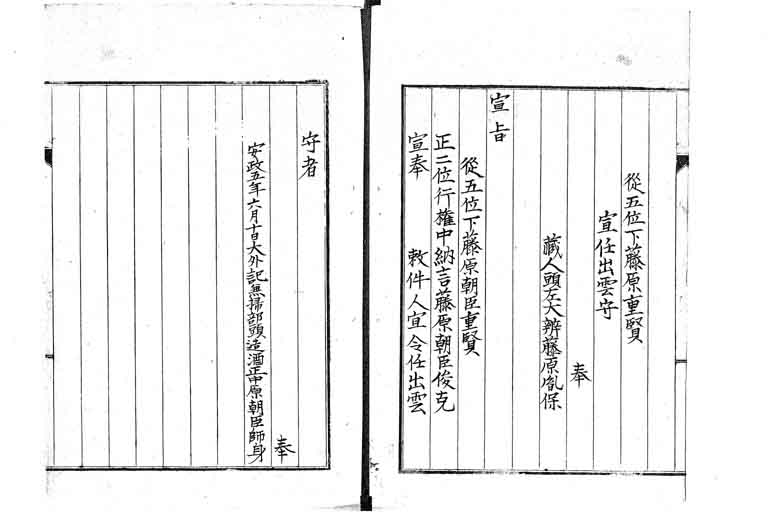 從五位下藤原重賢
宣任出雲守
藏人頭左大辨藤原胤保
奉
宣旨
從五位下藤原朝臣重賢
正二位行權中納言藤原朝臣俊克
宣奉 敕件人宜令任出雲
守者
安政五年六月十日大外記無掃部頭造酒正中原朝臣師身
奉